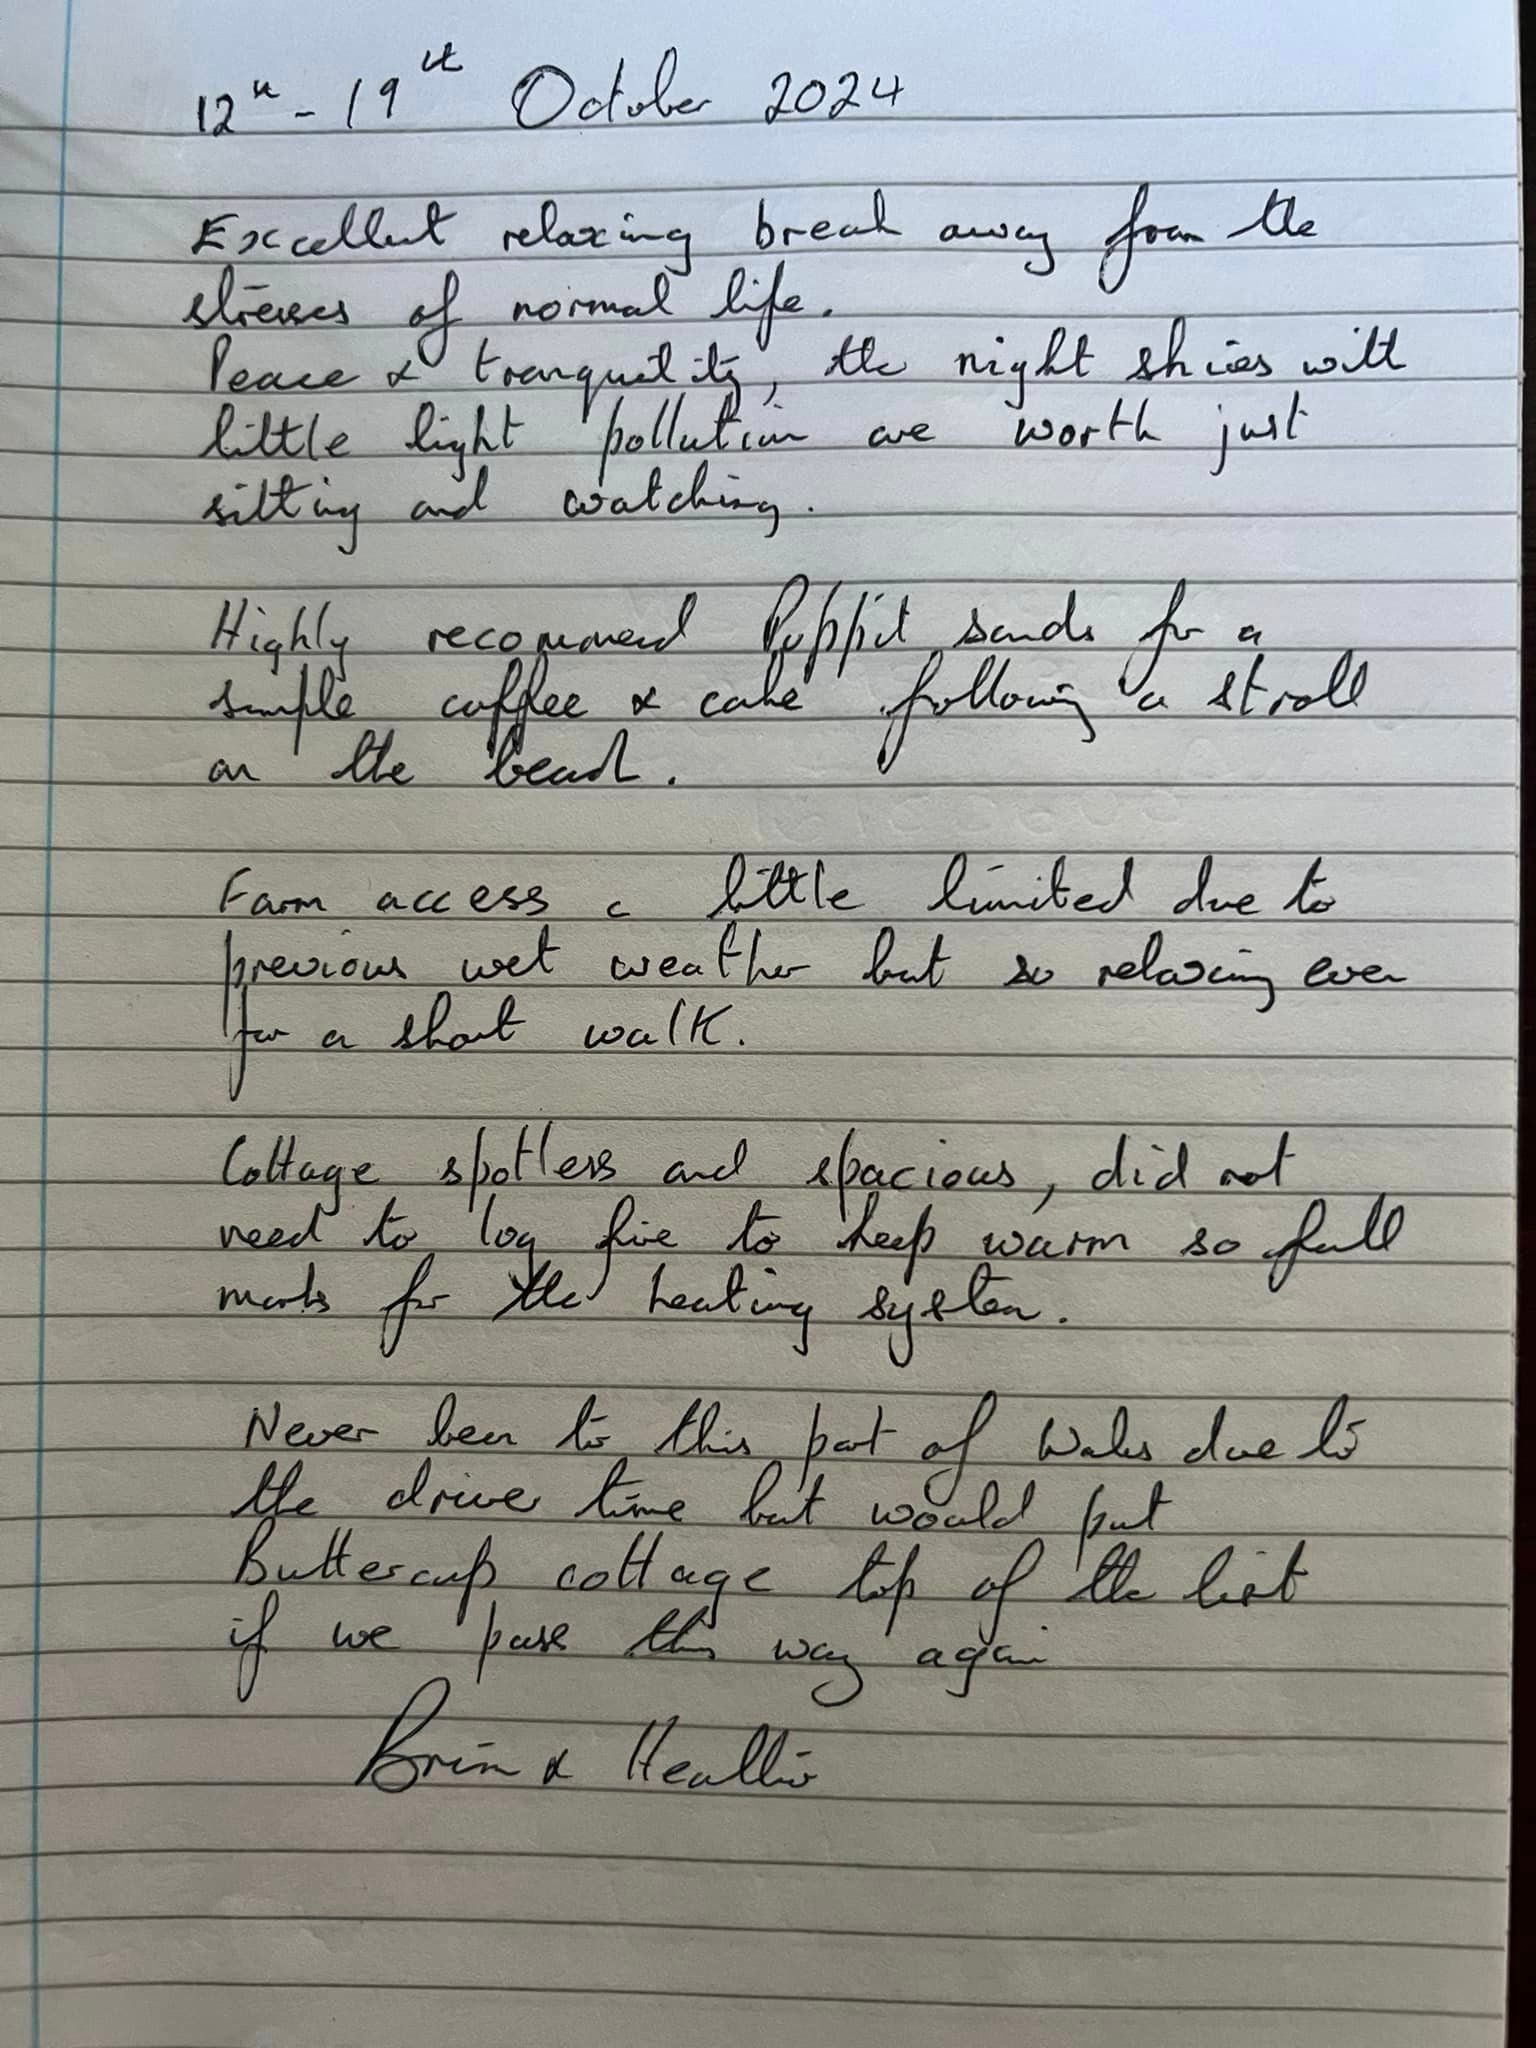 12th - 19th October 2024
Excellent relaxing break away from the
stresses of normal life.
Peace & tranquility, the night skies with
little light pollution are worth just
sitting and watching.
Highly recommend Poppit sands for a
simple coffee & cake following a stroll
on the beach.
Farm access a little limited due to
previous wet weather but so relaxing even
for a short walk.
Cottage spotless and spacious, did not
need to log fire to keep warm so full
marks for the heating system.
Never been to this part of Wales due to
the drive time but would put
Buttercup cottage top of the list
if we pass this way again
Brian &